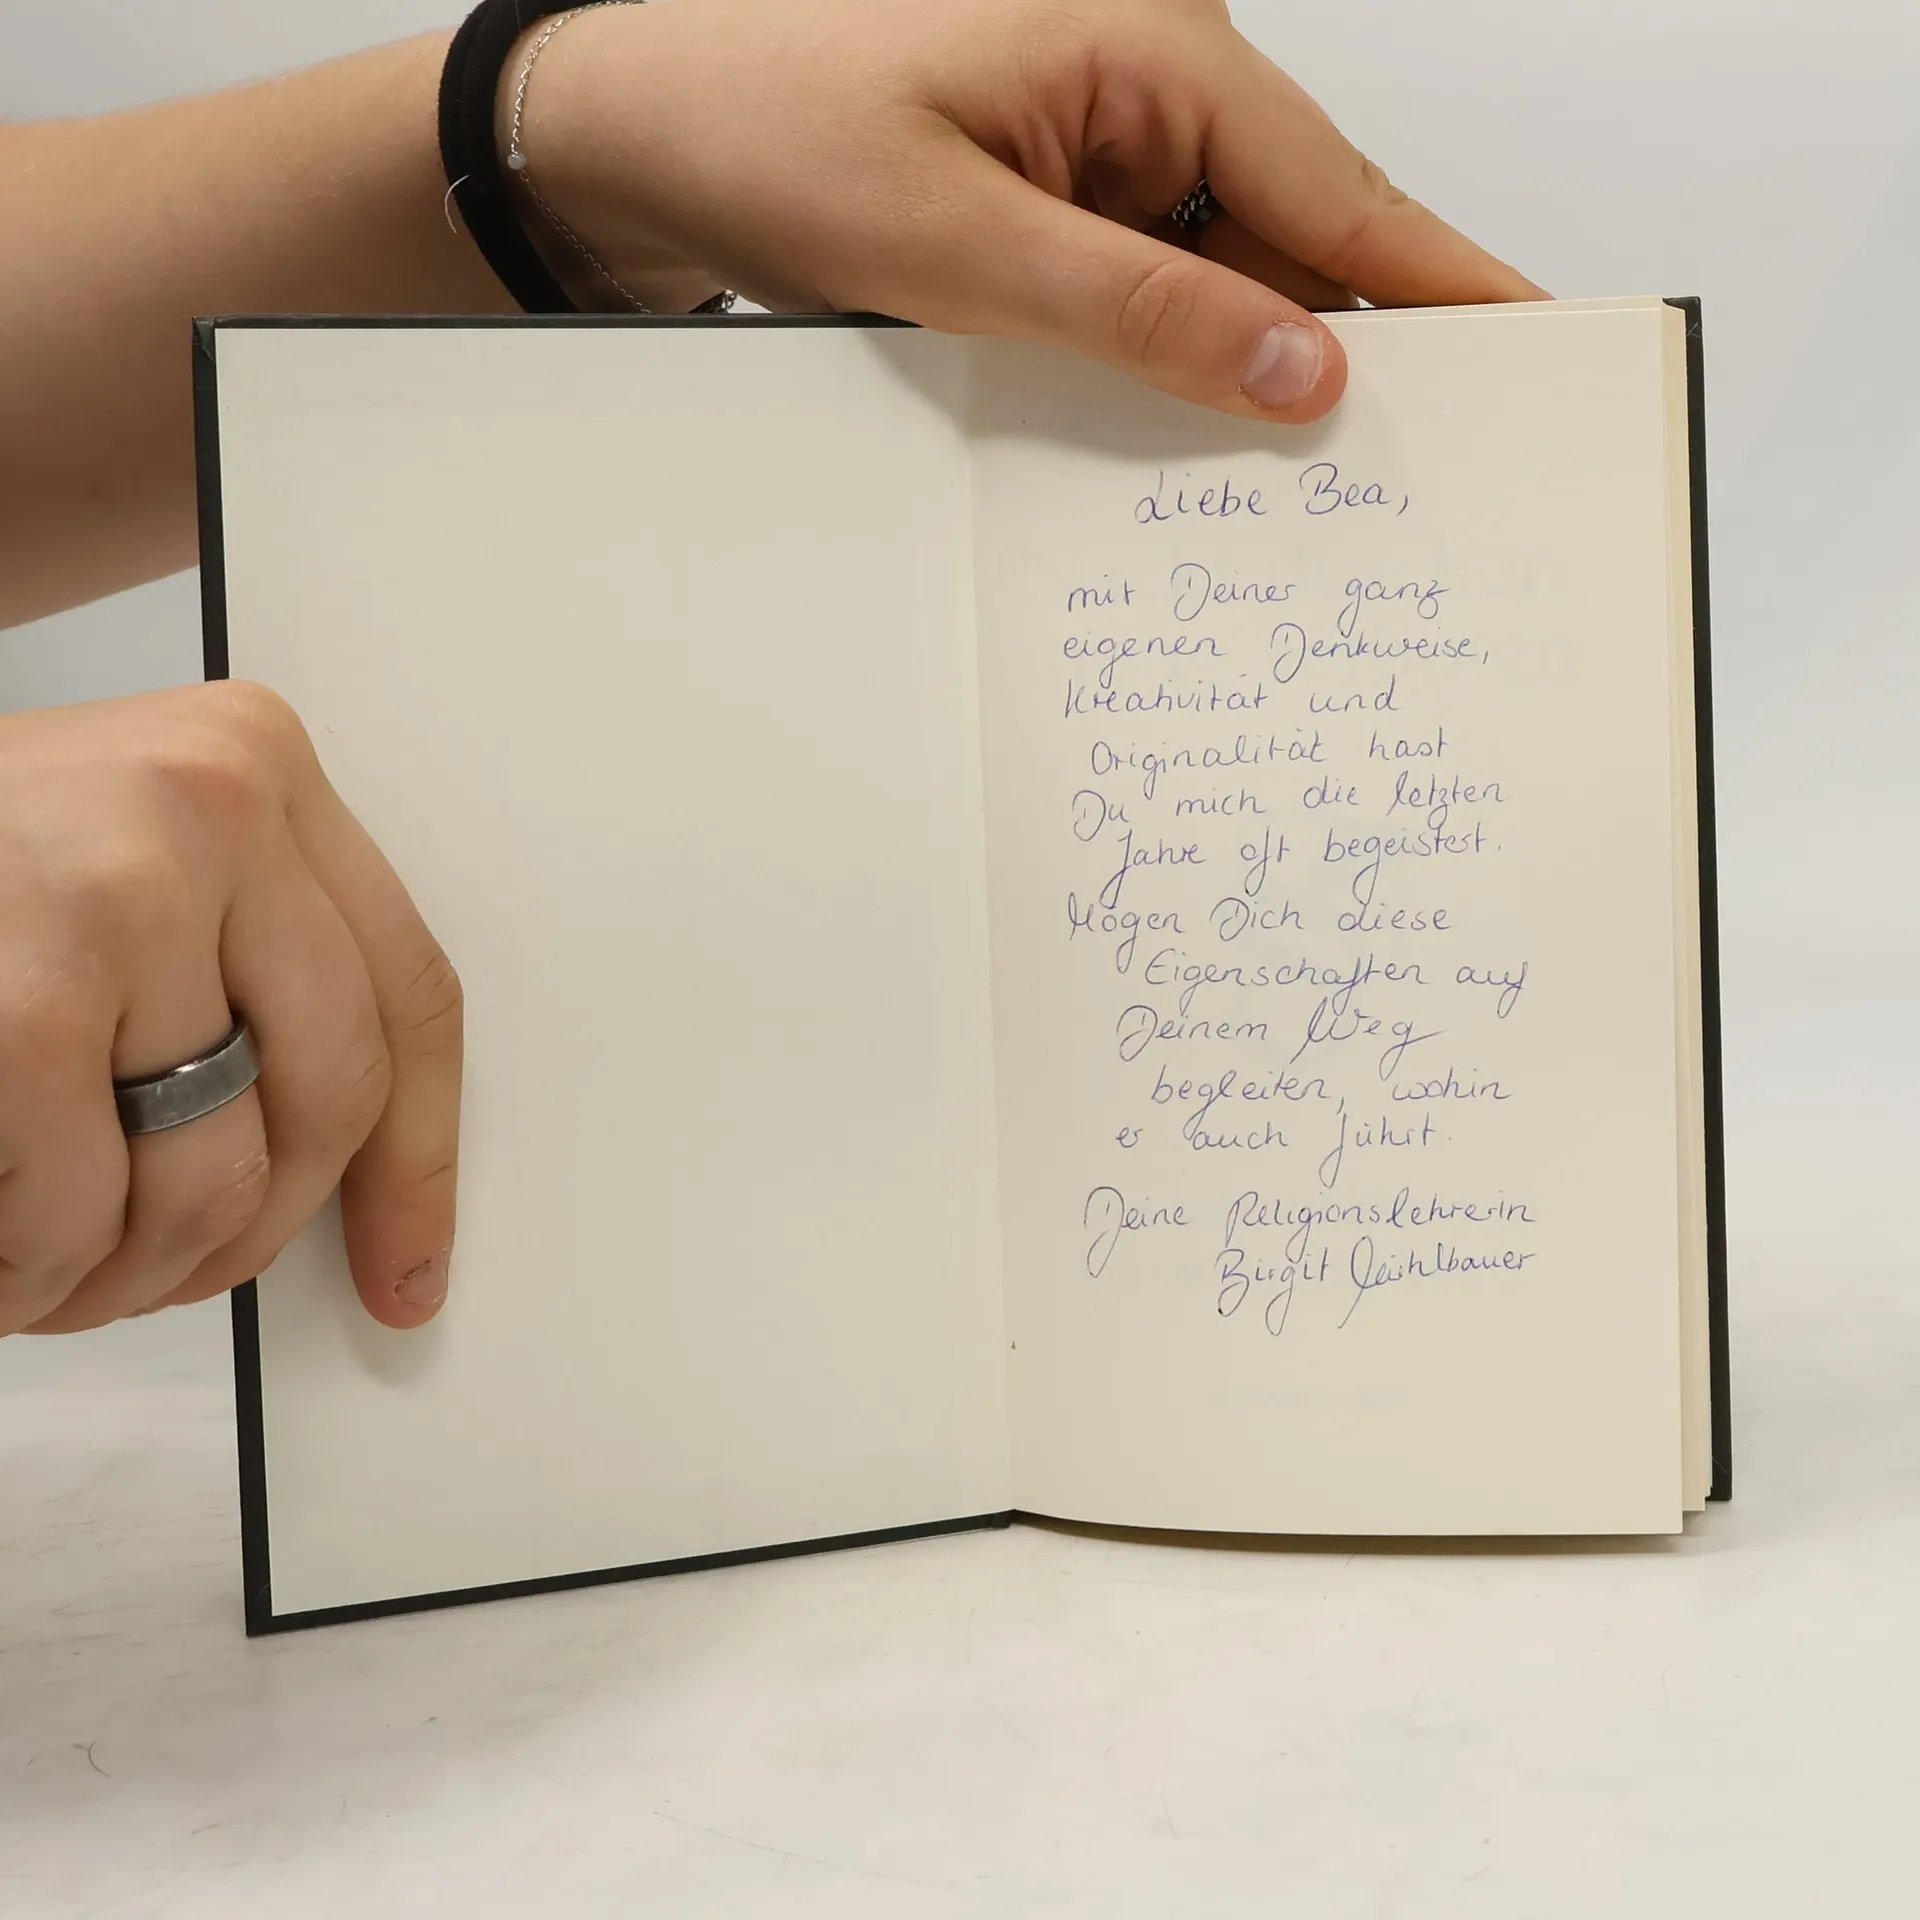 Liebe Bea,
mit Deiner ganz
eigenen Denkweise,
Kreativität und
Originalität hast
Du mich die letzten
Jahre oft begeistert.
Mögen Dich diese
Eigenschaften auf
Deinem Weg
begleiten, wohin
er auch führt.
Deine Religionslehrerin
Birgit Mühlbauer